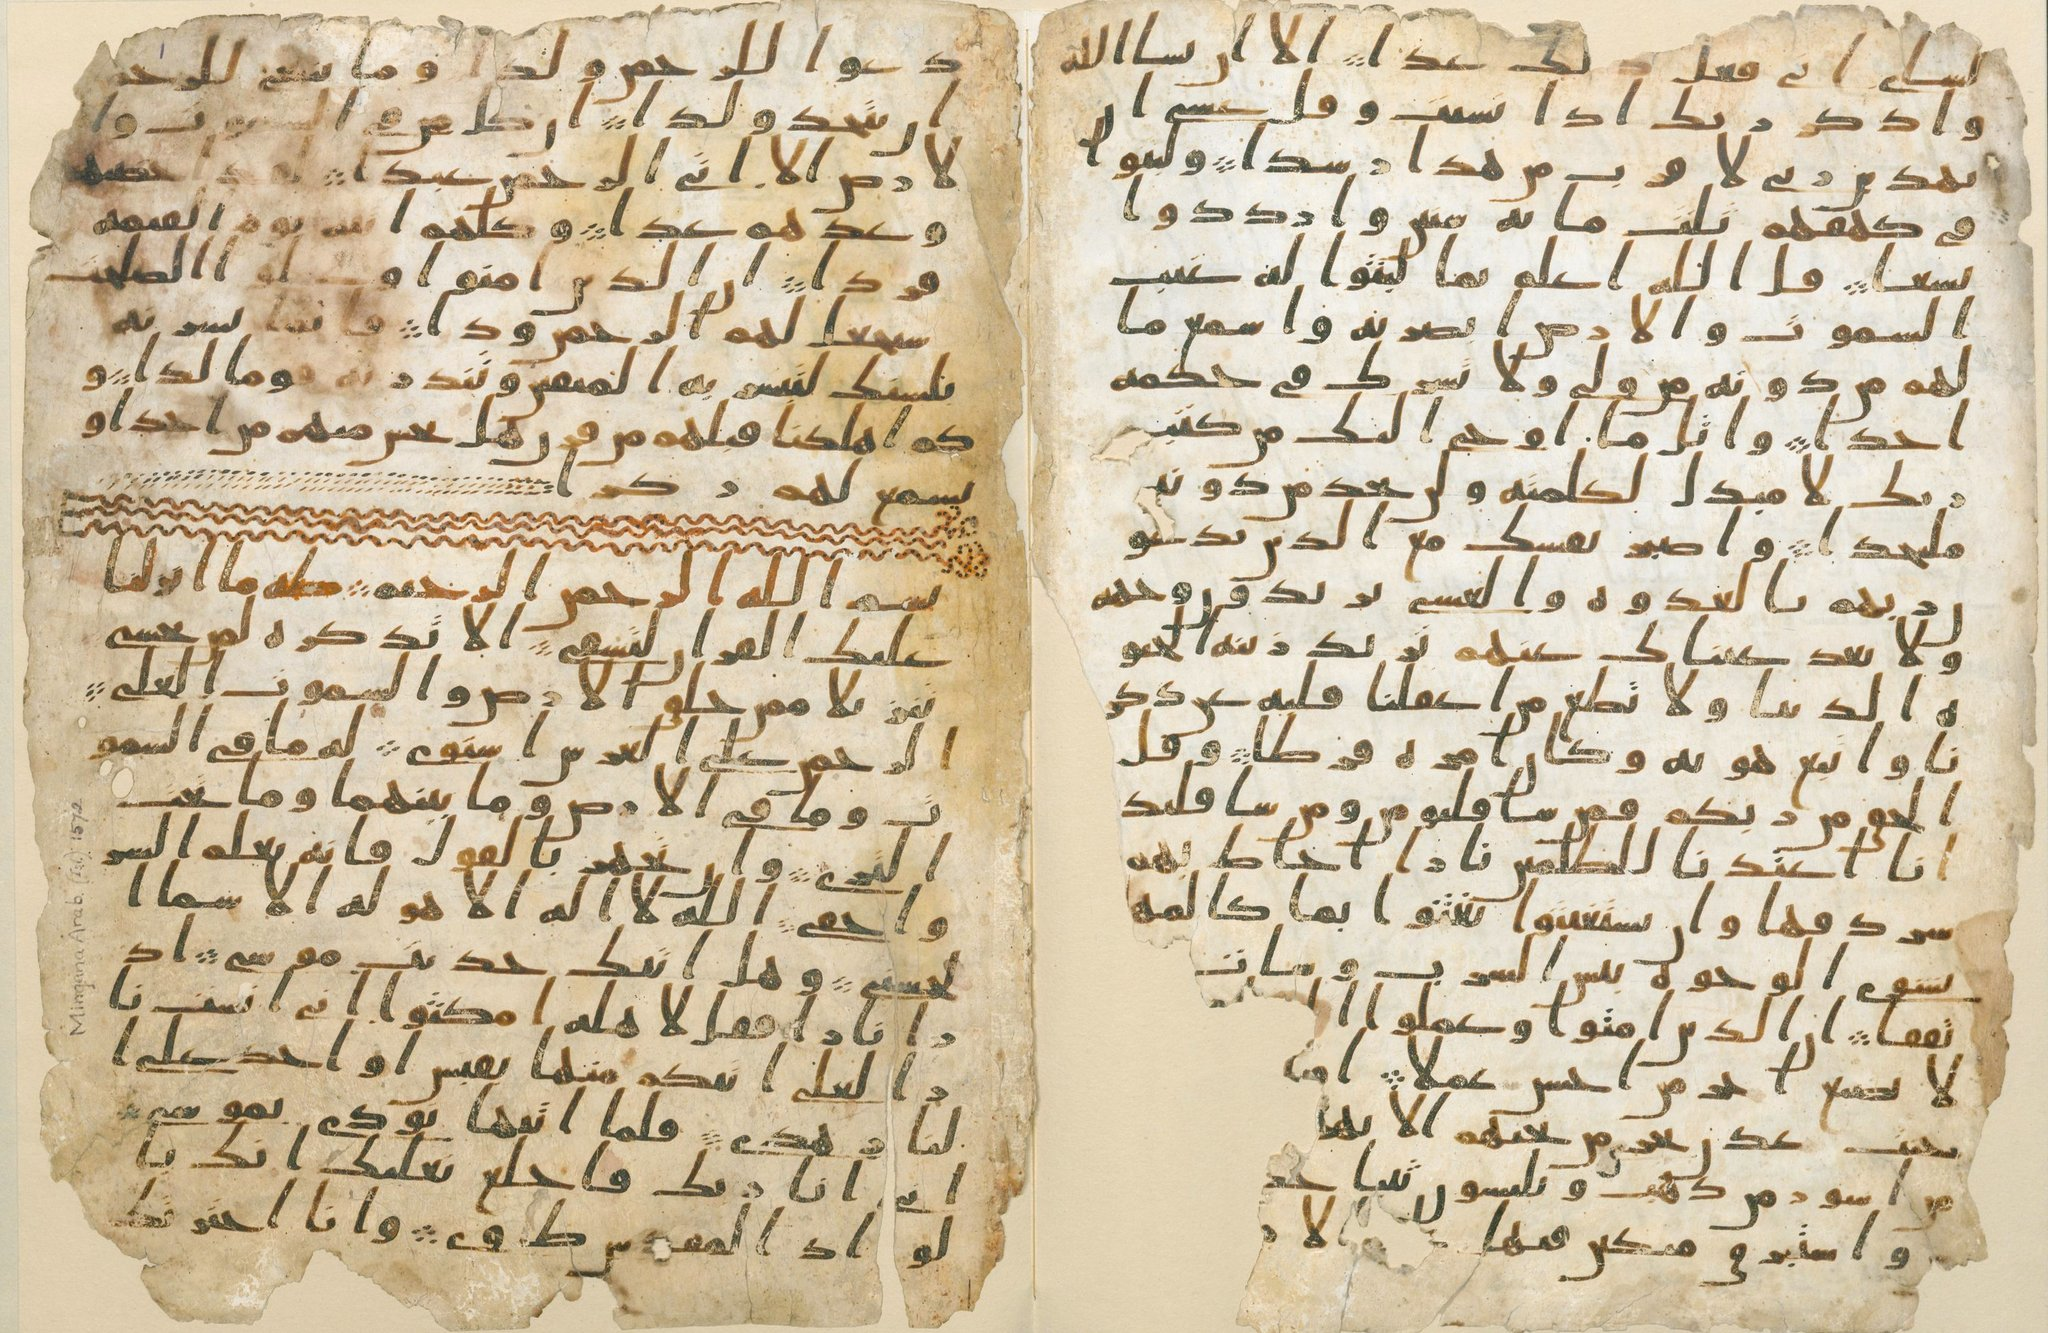 لشاى انى فعل ذلك غدا الا ان يشا الله
واذكر ربك اذا نسيت وقل عسى ان
يهدين ربى لاقرب من هذا رشدا ولبثوا
فى كهفهم ثلث مائه سنين وازددوا
تسعا قل الله اعلم بما لبثوا له غيب
السموت والارض ابصر به واسمع ما
لهم من دونه من ولى ولا تشرك فى حكمه
احدا واتل ما اوحى اليك من كتب
ربك لا مبدل لكلمته ولن تجد من دونه
ملتحدا واصبر نفسك مع الذين يدعو
ن ربهم بالغدوه والعشى يريدون وجهه
ولا تعد عيناك عنهم تريد زينه الحيو
ه الدنيا ولا تطع من اغفلنا قلبه عن ذكر
نا واتبع هويه وكان امره فرطا وقل
الحق من ربكم فمن شا فليومن ومن شا فليك
انا اعتدنا للظلمين نارا احاط بهم
سردقها وان يستغيثوا يغثوا بما كالمه
يشوى الوجوه بئس الشرب وسات
تفقا ان الذين امنوا وعملوا ا
لا نضيع اجر من احسن عملا
جنت عدن تجرى من تحتهم الانها
من اسور من ذهب ويلبسون ثيابا خ
واستبرق متكين فيها الار
دعوا للرحمن ولدا وما ينبغى للرحمن
ان يتخذ ولدا ان كل من فى السموت وا
لارض الا اتى الرحمن عبدا لقد احصيهم
وعدهم عدا وكلهم اتيه يوم القيمه
فردا ان الذين امنوا وعملوا الصلحت
سيجعل لهم الرحمن ودا فانما يسرنه
بلسنك لتبشر به المتقين وتنذر به قوما لدا و
كم اهلكنا قبلهم من قرن هل تحس منهم من احد او
تسمع لهم ركزا
بسم الله الرحمن الرحيم طه ما انزلنا
عليك القران لتشقى الا تذكره لمن يخشى
تنزيلا ممن خلق الارض والسموت العلى
الرحمن على العرش استوى له ما فى السمو
ت وما فى الارض وما بينهما وما تحت
الثرى وان تجهر بالقول فانه يعلم السر
واخفى الله لا اله الا هو له الاسما ا
لحسنى وهل اتيك حديث موسى اذ
را نارا فقل لاهله امكثوا انى انست نا
را لعلى اتيكم منها بقبس او اجد على ا
لنار هدى فلما اتيها نودى يموسى
انى انا ربك فاخلع نعليك انك با
لواد المقدس طوى وانا اخترتك
Mingana Arab. (Isl.) 1572